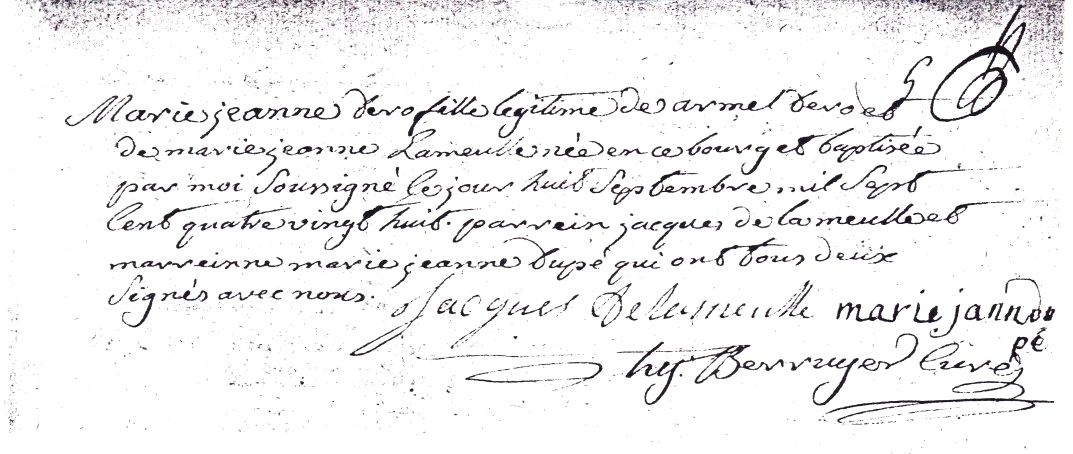 Marie jeanne Dero fille legitime de armel Dero et
de marie jeanne Lameulle née en ce bourg et baptisée
par moi Soussigné le jour huit Septembre mil Sept
Cent quatre vingt huit. parrein jacques de la meulle et
marreinne marie jeanne Dupé qui ont tous deux
Signés avec nous.
Jacques Delameulle marie jann du
pé
hy. Berruyer Curé